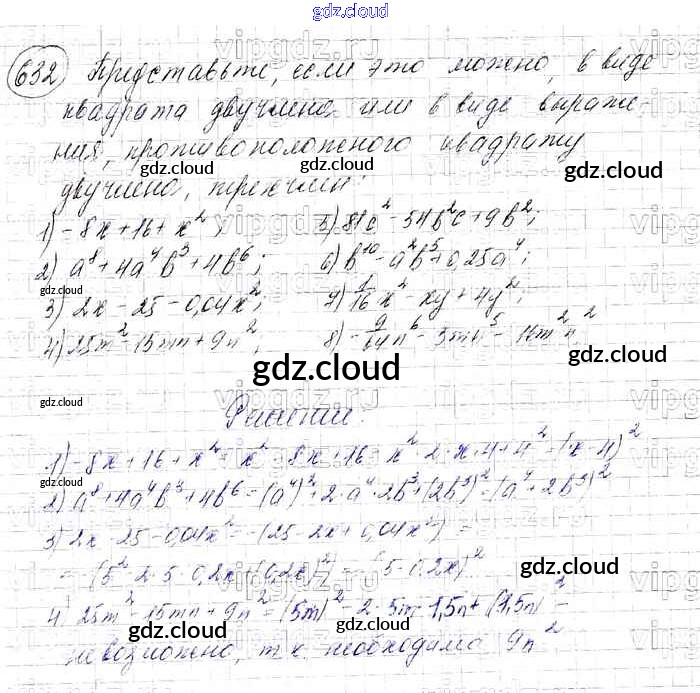 gdz.cloud
632 Представьте, если это можно, в виде
квадрата двучлена или в виде выраже-
ния, противоположного квадрату
двучлена, трехчлен:
1) -8x+16+x²; 5) 81c²-54b²c+9b²;
2) a⁸+4a⁴b³+4b⁶; 6) b¹⁰-a²b⁵+0,25a⁴;
3) 2x-25-0,04x²; 7) 1/16x²-xy+4y²;
4) 25m²-15mn+9n²; 8) -9/64n⁶-3mn⁵-16m²n²
gdz.cloud
Решение.
1) -8x+16+x²=x²-8x+16=x²-2·x·4+4²=(x-4)²
2) a⁸+4a⁴b³+4b⁶=(a⁴)²+2·a⁴·2b³+(2b³)²=(a⁴+2b³)²
3) 2x-25-0,04x²=-(25-2x+0,04x²)=
=-(5²-2·5·0,2x+(0,2x)²)=-(5-0,2x)²
4. 25m²-15mn+9n²=(5m)²-2·5m·1,5n+(1,5n)²-
невозможно, т.к. необходима 9n²